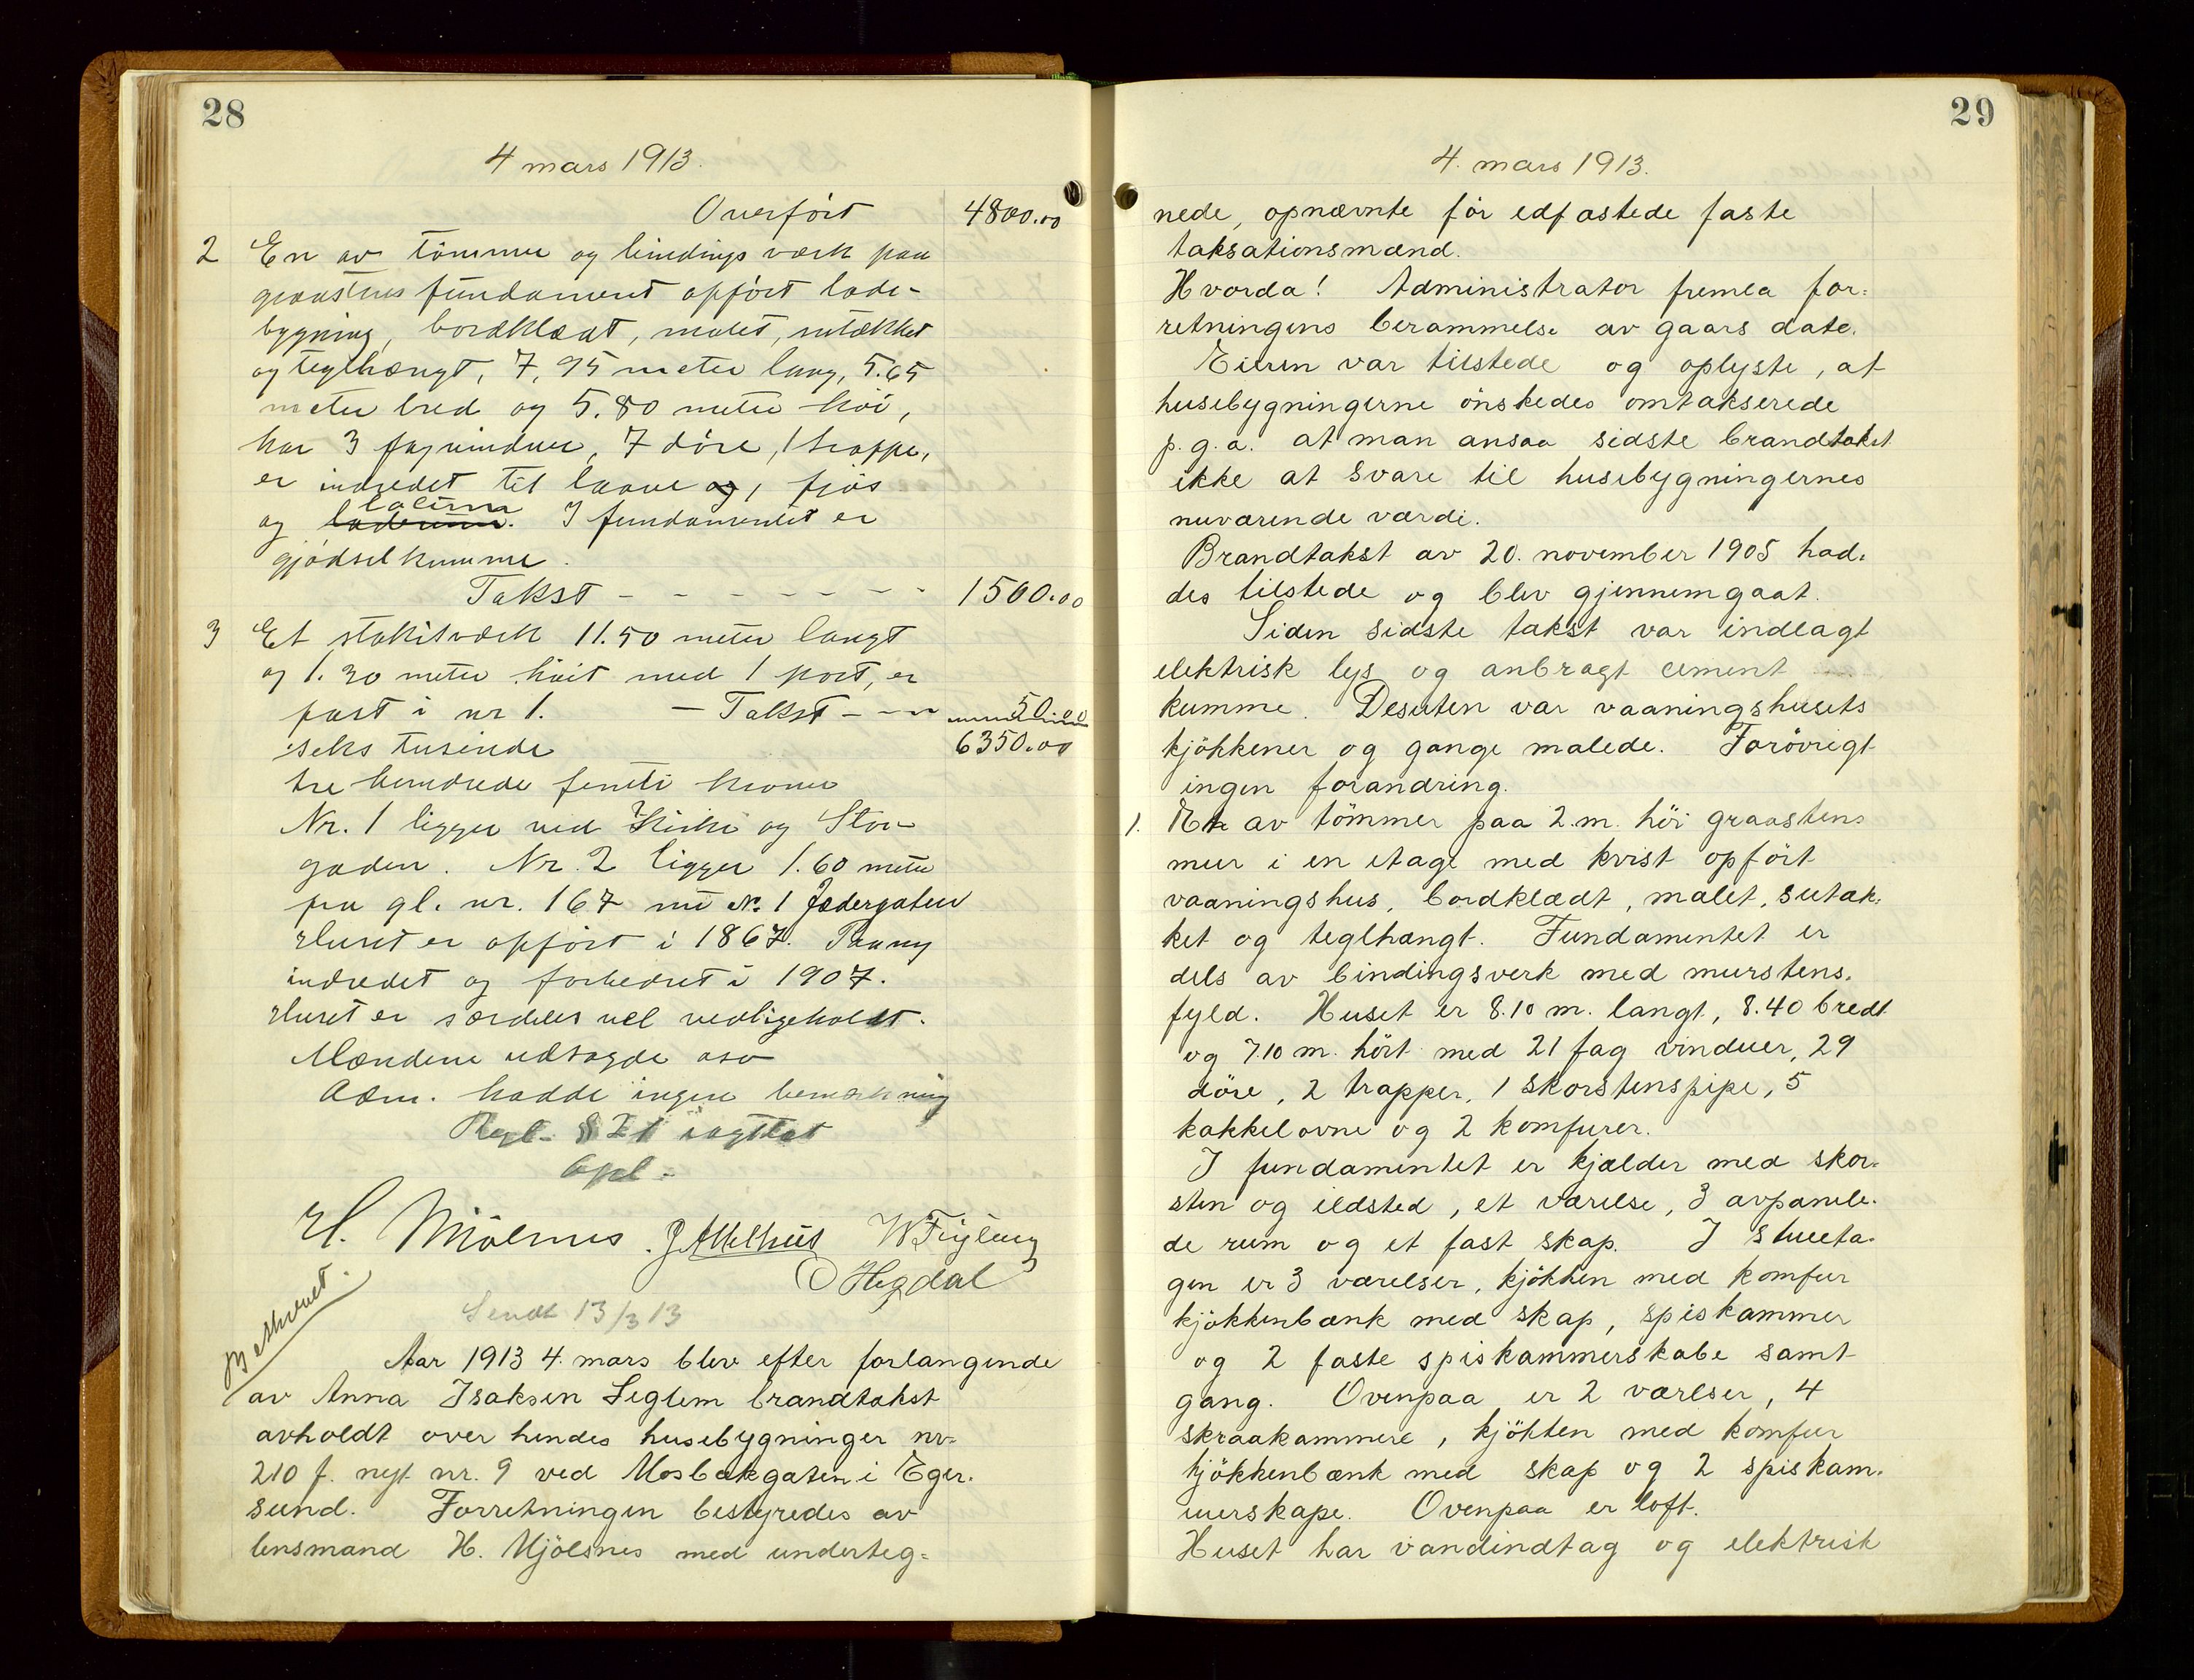 28
4 mars 1913.
Overført 4800.00
2 En av tömmer og bindingsværk paa
graastens fundament opfört lade-
bygning, bordklædt, malet, sutækket
og teglhængt, 7,95 meter lang, 5.65
meter bred og 5.80 meter höi,
har 3 fag vinduer, 7 döre, 1 trappe,
er indredet til laave og, fjös
og laderum. latrine I fundamentet er
gjödselkumme.
Takst - - - - - - - 1500.00
3 Et stakitværk 11.50 meter langt
og 1.30 meter höit med 1 port, er
fast i nr 1. - Takst - - - 50.00
seks tusinde 6350.00
tre hundrede femti kroner
Nr. 1 ligger ved Kirke og Stor-
gaden. Nr. 2 ligger 1.60 meter
fra gl. nr. 167 nu Nr. 1 Jædergaten
Huset er opfört i 1867. Paany
indredet og forbedret i 1907.
Huset er særdeles vel vedligeholdt.
Mændene udsagde osv
Adm. hadde ingen bemerkning
Regl. § 21 iagttat
Opl.
H. Mjölsnes J Athelhus W Feyling
O Hegdal
Sendt 13/3 13
Beskrevet.
Aar 1913 4. mars blev efter forlangende
av Anna Isaksen Seglem brandtakst
avholdt over hendes husebygninger nr.
210 f. nyt nr. 9 ved Mosbækgaten i Eger-
sund. Forretningen bestyredes av
lensmand H. Mjölsnes med underteg-
29
4. mars 1913.
nede, opnævnte för edfæstede faste
taksationsmænd.
Hvorda! Administrator fremla for-
retningens berammelse av gaars dato.
Eieren var tilstede og oplyste, at
husebygningerne önskedes omtakserede
p.g.a. at man ansaa sidste brandtakst
ikke at svare til husebygningernes
nuværende værdi.
Brandtakst av 20. november 1905 had-
des tilstede og blev gjennemgaat.
Siden sidste takst var indlagt
elektrisk lys og anbragt cement
kumme. Desuten var vaaningshusets
kjökkener og gange malede. Forövrigt
ingen forandring.
1. Et av tömmer paa 2 m. höi graastens
mur i en etage med kvist opfört
vaaningshus, bordklædt, malet, sutæk-
ket og teglhængt. Fundamentet er
dels av bindingsverk med murstens-
fyld. Huset er 8.10 m. langt, 8.40 bredt
og 7.10 m. höit med 21 fag vinduer, 29
döre, 2 trapper, 1 skorstenspipe, 5
kakkelovne og 2 komfurer.
I fundamentet er kjælder med skor-
sten og ildsted, et værelse, 3 avpanele-
de rum og et fast skap. I stueeta-
gen er 3 værelser, kjökken med komfur
kjökkenbænk med skap, spiskammer
og 2 faste spiskammerskabe samt
gang. Ovenpaa er 2 værlser, 4
skraakammere, kjökken med komfur
kjökkenbænk med skap og 2 spiskam-
merskape. Ovenpaa er loft.
Huset har vandindtag og elektrisk